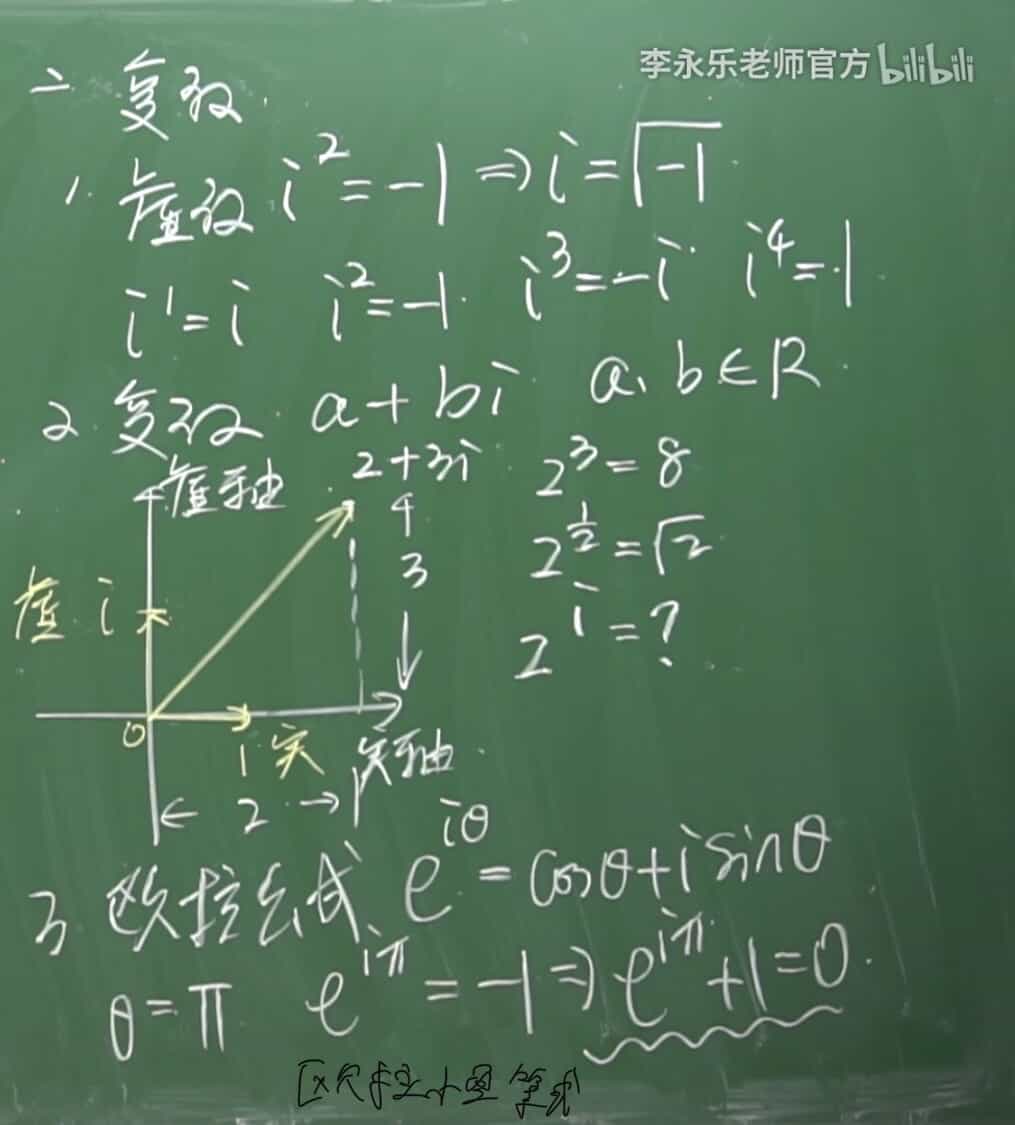 李永乐老师官方 bilibili
二、复数
1. 虚数 i² = -1 ⇒ i = √-1
i¹ = i i² = -1 i³ = -i i⁴ = 1
2. 复数 a + bi a、b ∈ R
虚轴 2 + 3i 2³ = 8
↑
3 2^{1/2} = √2
虚 i
↓ 2^i = ?
0 1 实 实轴
← 2 →
3 欧拉公式 e^{iθ} = cosθ + i sinθ
θ = π e^{iπ} = -1 ⇒ e^{iπ} + 1 = 0
欧拉恒等式